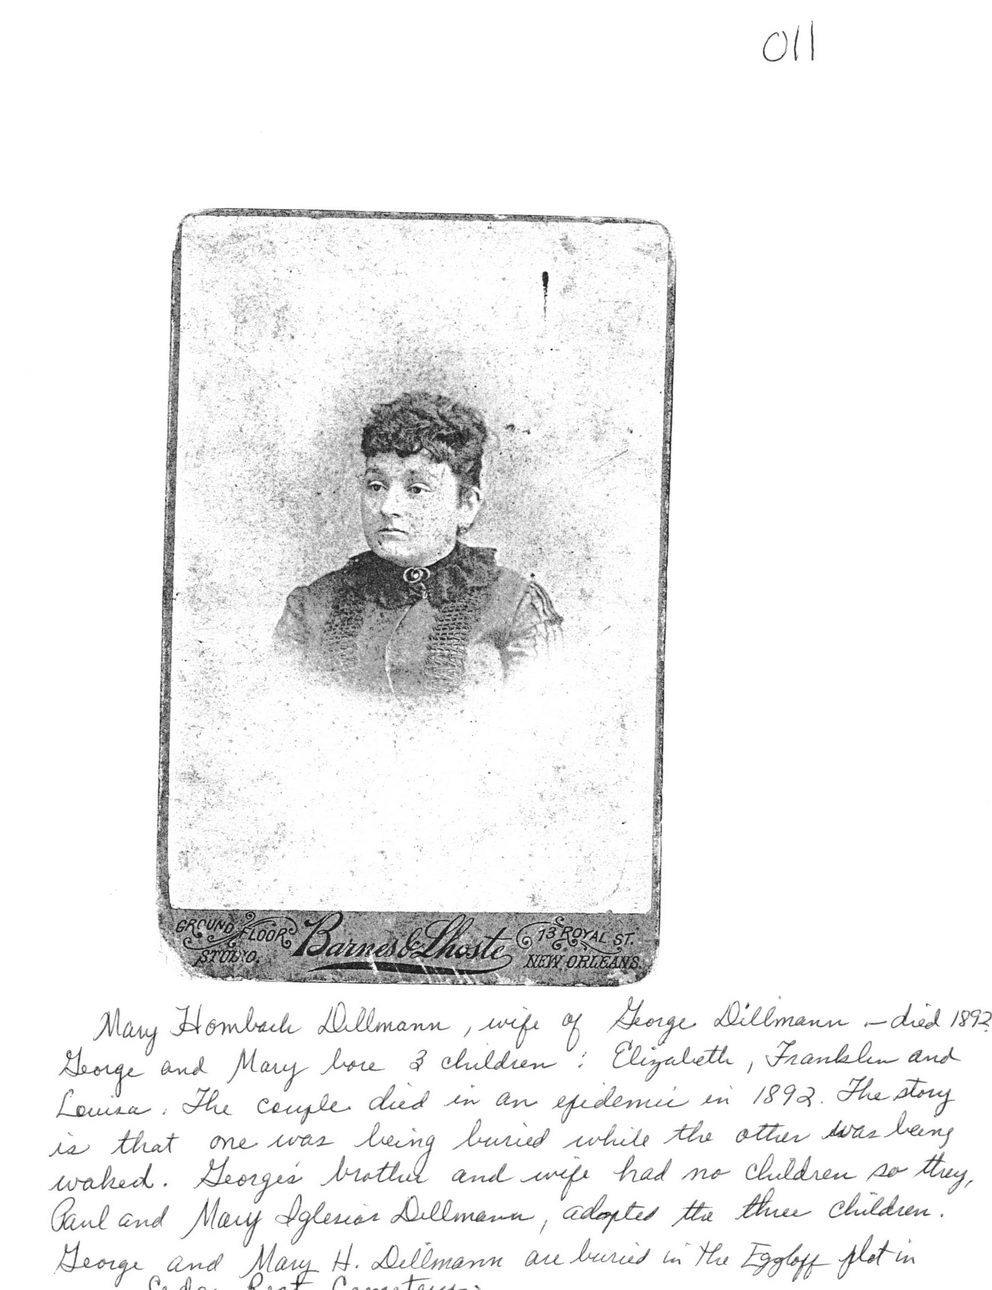 011
GROUND FLOOR
STUDIO,
Barnes & Lhoste
73 ROYAL ST.
NEW ORLEANS.
Mary Hombach Dillmann, wife of George Dillmann – died 1892
George and Mary bore 3 children: Elizabeth, Franklin and
Louisa. The couple died in an epidemic in 1892. The story
is that one was being buried while the other was being
waked. George's brother and wife had no children so they,
Paul and Mary Iglesias Dillmann, adopted the three children.
George and Mary H. Dillmann are buried in the Eggloff plot in
Cedar Rest Cemetery.